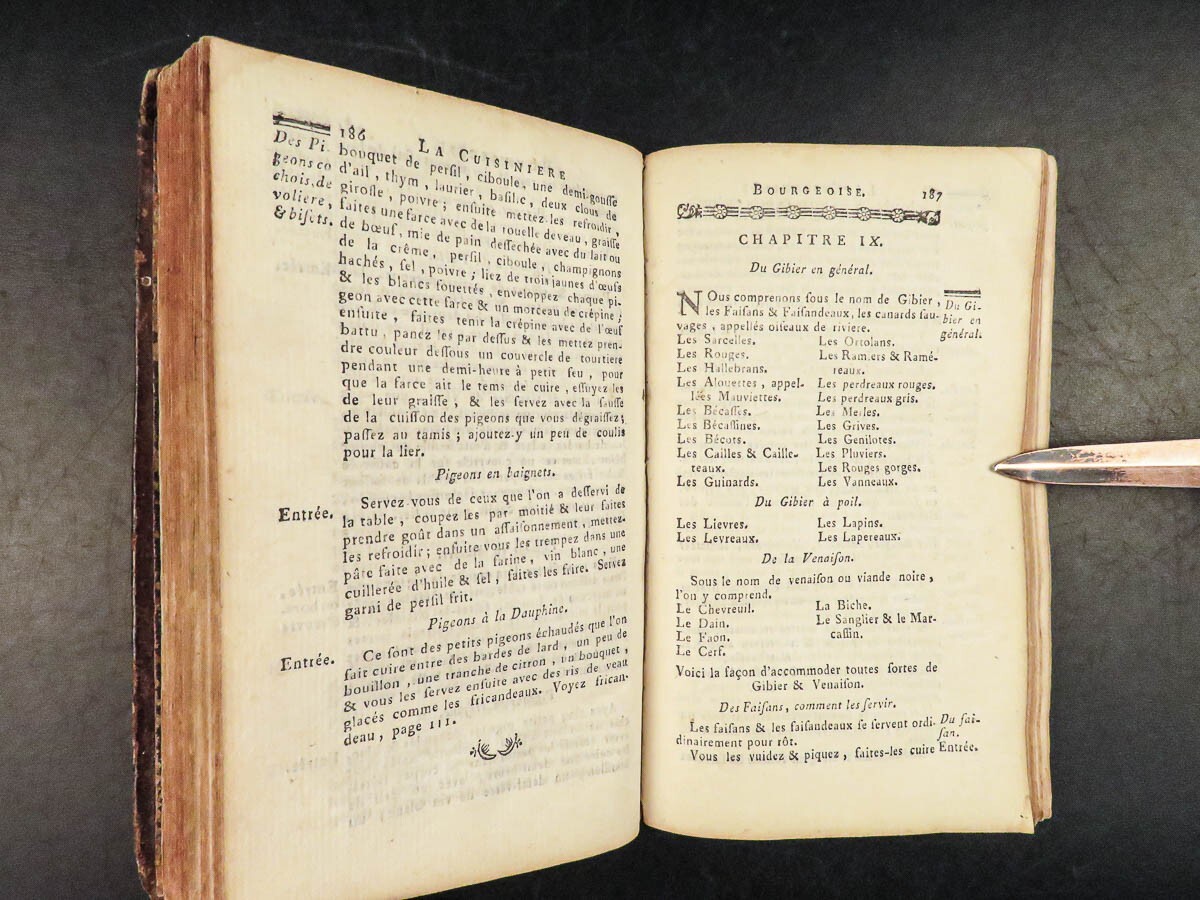 186 LA CUISINIERE
Des Pi-
geons co
chois, de
voliere,
& bisets.
bouquet de persil, ciboule, une demi-gousse
d'ail, thym, laurier, basilic, deux clous de
girofle, poivre; ensuite mettez-les refroidir,
faites une farce avec de la rouelle de veau, graisse
de bœuf, mie de pain dessechée avec du lait ou
de la crême, persil, ciboule, champignons
hachés, sel, poivre; liez de trois jaunes d'œufs
& les blancs fouettés, enveloppez chaque pi-
geon avec cette farce & un morceau de crépine;
ensuite, faites tenir la crépine avec de l'œuf
battu, panez les par dessus & les mettez pren-
dre couleur dessous un couvercle de tourtiere
pendant une demi-heure à petit feu, pour
que la farce ait le tems de cuire, essuyez les
de leur graisse, & les servez avec la sausse
de la cuisson des pigeons que vous dégraissez;
passez au tamis; ajoutez-y un peu de coulis
pour la lier.
Pigeons en baignets.
Entrée.
Servez-vous de ceux que l'on a desservi de
la table, coupez les par moitié & leur faites
prendre goût dans un assaisonnement, mettez-
les refroidir; ensuite vous les trempez dans une
pâte faite avec de la farine, vin blanc, une
cuillerée d'huile & sel, faites les frire. Servez
garni de persil frit.
Pigeons à la Dauphine.
Entrée.
Ce sont des petits pigeons échaudés que l'on
fait cuire entre des bardes de lard, un peu de
bouillon, une tranche de citron, un bouquet,
& vous les servez ensuite avec des ris de veau
glacés comme les fricandeaux. Voyez frican-
deau, page 111.
BOURGEOISE. 187
CHAPITRE IX.
Du Gibier en général.
Du Gi-
bier en
général.
NOus comprenons sous le nom de Gibier,
les Faisans & Faisandeaux, les canards sau-
vages, appellés oiseaux de riviere.
Les Sarcelles.
Les Rouges.
Les Hallebrans.
Les Alouettes, appel-
lées Mauviettes.
Les Bécasses.
Les Bécassines.
Les Bécots.
Les Cailles & Caille-
teaux.
Les Guinards.
Les Ortolans.
Les Ramiers & Ramé-
reaux.
Les perdreaux rouges.
Les perdreaux gris.
Les Merles.
Les Grives.
Les Genilotes.
Les Pluviers.
Les Rouges gorges.
Les Vanneaux.
Du Gibier à poil.
Les Lievres.
Les Levreaux.
Les Lapins.
Les Lapereaux.
De la Venaison.
Sous le nom de venaison ou viande noire,
l'on y comprend.
Le Chevreuil.
Le Dain.
Le Faon.
Le Cerf.
La Biche.
Le Sanglier & le Mar-
cassin.
Voici la façon d'accommoder toutes sortes de
Gibier & Venaison.
Des Faisans, comment les servir.
Du fai-
san.
Les faisans & les faisandeaux se servent ordi-
dinairement pour rôt.
Vous les vuidez & piquez, faites-les cuire
Entrée.